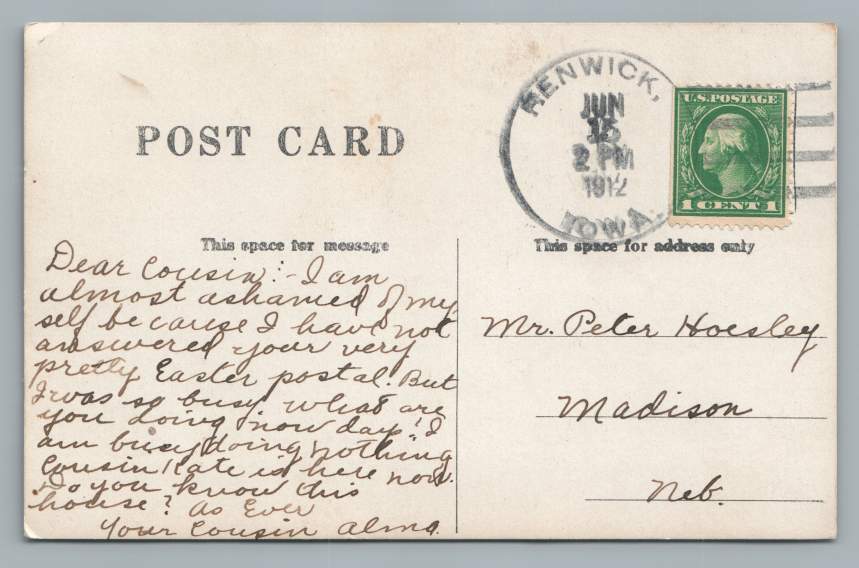 POST CARD
RENWICK,
JUN
15
2 PM
1912
IOWA.
U.S. POSTAGE
1 CENT 1
This space for message
This space for address only
Dear Cousin:- I am
almost ashamed of my
self because I have not
answered your very
pretty Easter postal. But
I was so busy what are
you doing now day! I
am busy doing nothing
Cousin Kate is here now.
Do you know this
house? As Ever
Your Cousin Alma.
Mr. Peter Hoesley
Madison
Neb.